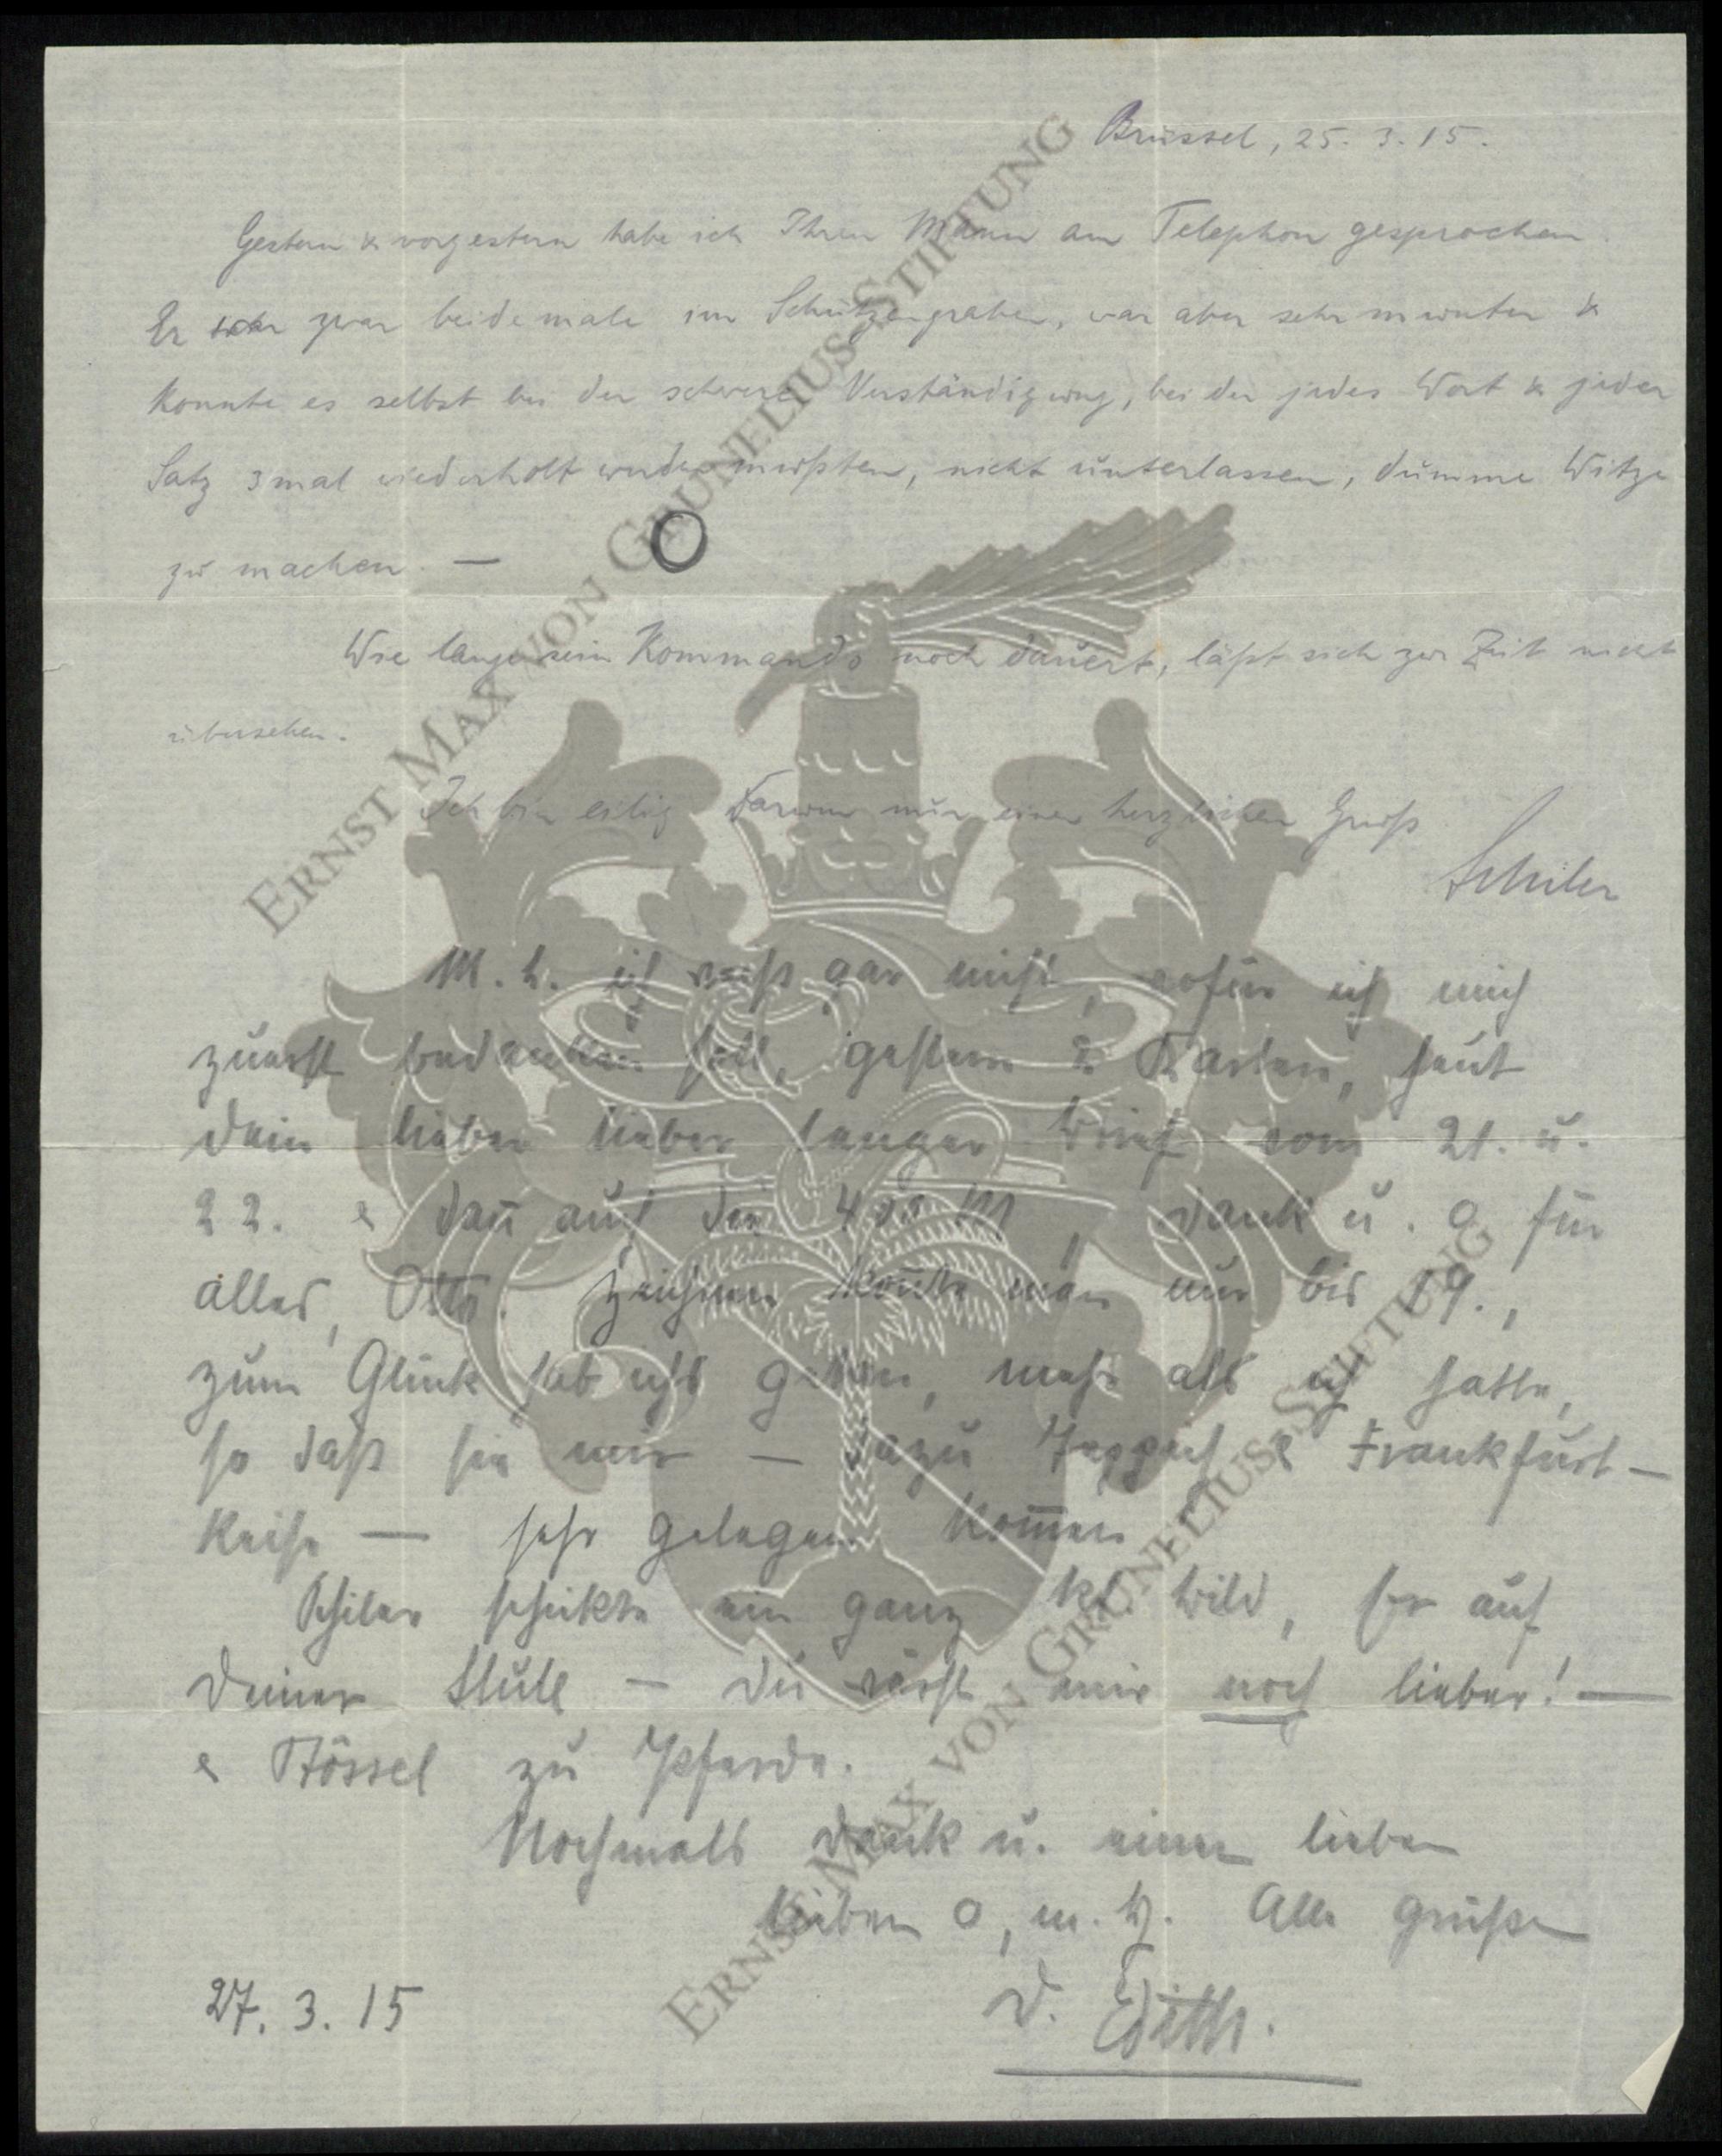 Brüssel, 25. 3. 15.
Gestern & vorgestern habe ich Ihren Mann am Telephon gesprochen.
Er war zwar beidemale im Schützengraben, war aber sehr munter &
konnte es selbst bei der schweren Verständigung, bei der jedes Wort & jeder
Satz 3 mal wiederholt werden mußten, nicht unterlassen, dumme Witze
zu machen. — O
Wie lange sein Kommando noch dauert, läßt sich zur Zeit nicht
übersehen.
Ich bin eilig darum nur einen herzlichen Gruß
Schiler
M. L. ich weiß gar nicht, wofür ich mich
zuerst bedanken soll, gestern 2 Karten, heut
dein lieber lieber langer Brief vom 21. u.
22. & dan̄ auch die 400 M, Dank u. O für
alles, Otto. Zeichnen kon̄te man nur bis 19.,
zum Glück hab ichs getan, mehr als ich hatte,
so daß sie mir — dazu Teppich & Frankfurt-
Reise — sehr gelegen kom̄en.
Schiler schickte ein ganz kl. Bild, er auf
Deiner Stute — Du wärst mir noch lieber! —
& Stössel zu Pferde.
Nochmals Dank u. einen lieben
lieben O, m. H. Alle grüßen
D. Edith.
27. 3. 15
ERNST MAX VON GRUNELIUS-STIFTUNG
ERNST MAX VON GRUNELIUS-STIFTUNG